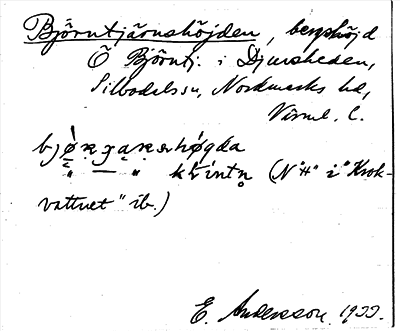 Björntjärnshöjden, bergshöjd
Ö Björntj. i Djursheden,
Silbodals sn, Nordmarks hd,
Värml. l.
klintn̥ (N "H" i "Krok-
vattnet" ib.)
E. Andersson. 1933.